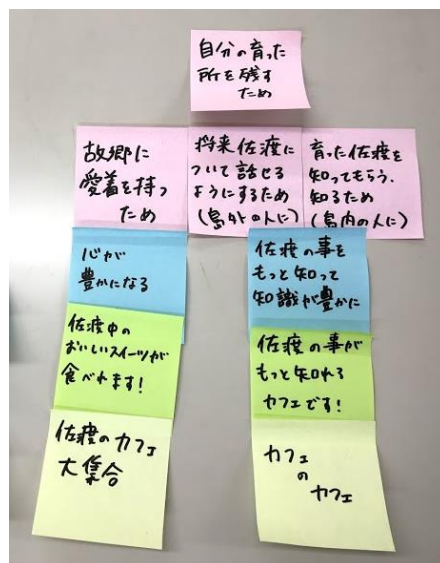 自分の育った
所を残す
ため
故郷に
愛着を持つ
ため
将来佐渡に
ついて話せる
ようにするため
(島外の人に)
育った佐渡を
知ってもらう、
知るため
(島内の人に)
心が
豊かになる
佐渡の事を
もっと知って
知識が豊かに
佐渡中の
おいしいスイーツが
食べれます!
佐渡の事が
もっと知れる
カフェです!
佐渡のカフェ
大集合
カフェ
の
カフェ